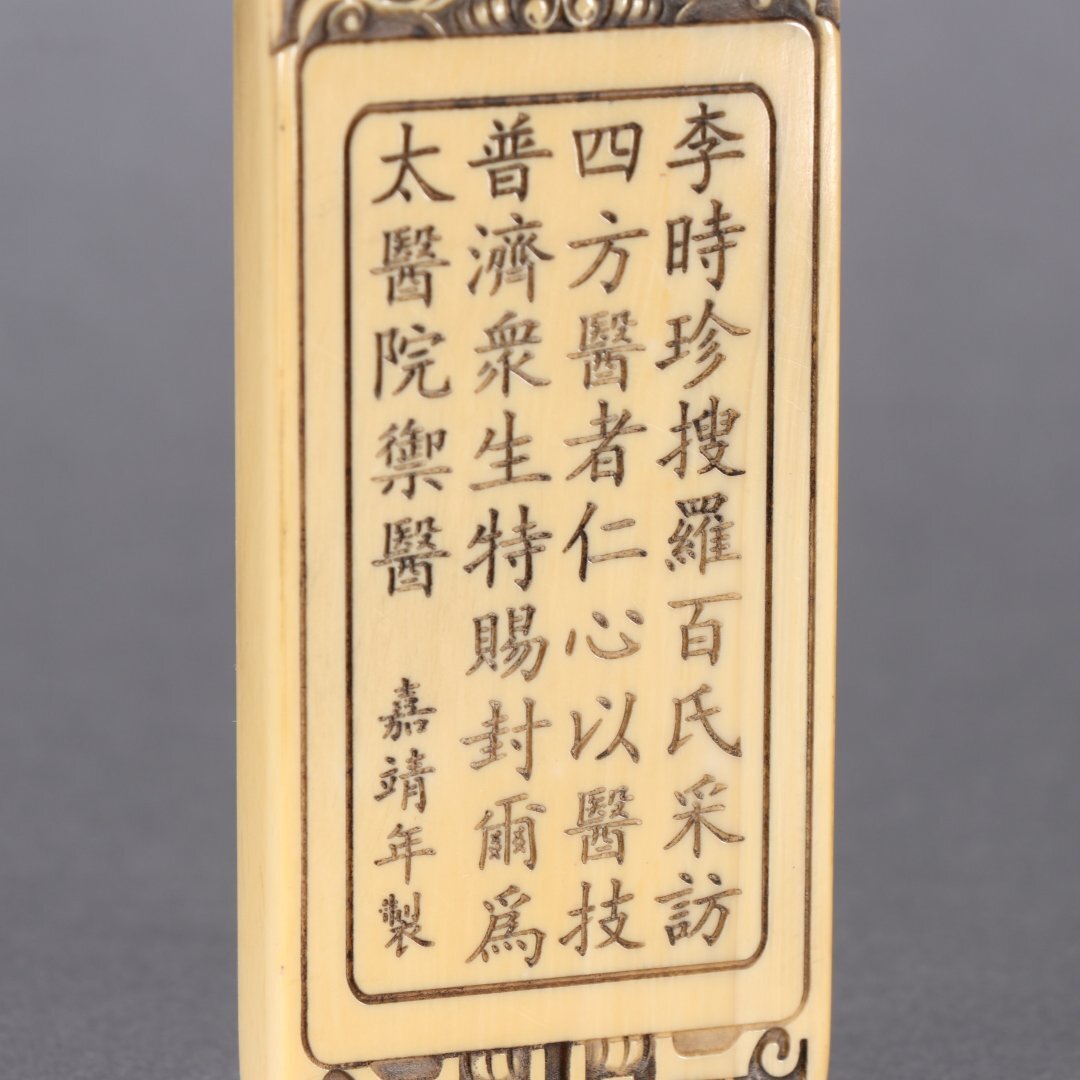 李時珍搜羅百氏采訪
四方醫者仁心以醫技
普濟衆生特賜封爾爲
太醫院禦醫 嘉靖年製